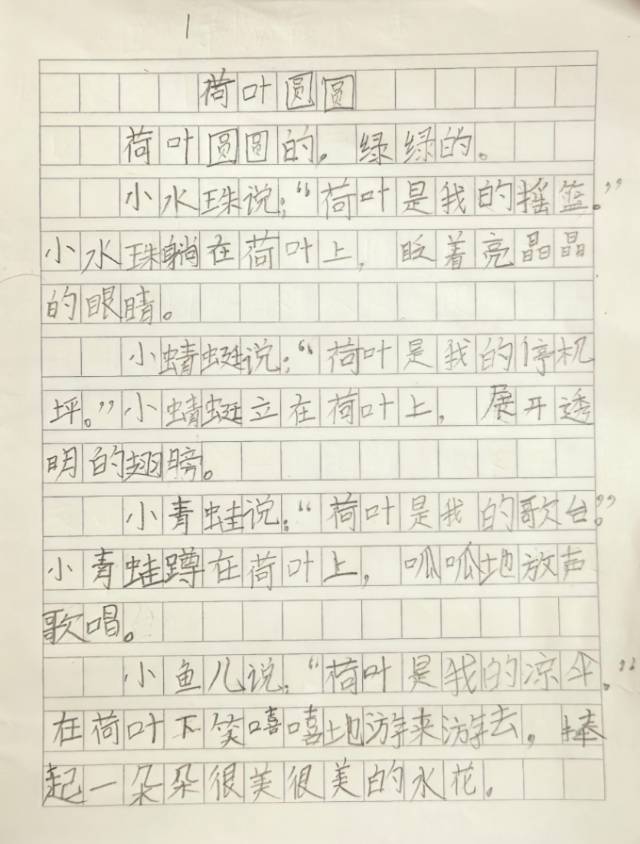 1
荷叶圆圆
荷叶圆圆的。绿绿的。
小水珠说：“荷叶是我的摇篮。”
小水珠躺在荷叶上，眨着亮晶晶
的眼睛。
小蜻蜓说：“荷叶是我的停机
坪。”小蜻蜓立在荷叶上，展开透
明的翅膀。
小青蛙说：“荷叶是我的歌台。”
小青蛙蹲在荷叶上，呱呱地放声
歌唱。
小鱼儿说：“荷叶是我的凉伞。”
在荷叶下笑嘻嘻地游来游去，捧
起一朵朵很美很美的水花。